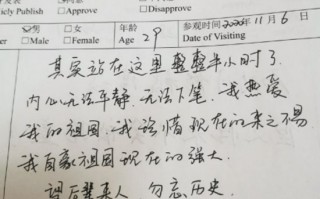 开发表 □不同意
icly Publish □Approve □Disapprove
☑男 □女 年龄 29 参观时间 2020年11月6日
Male Female Age Date of Visiting
其实站在这里整整半小时了
内心无法平静,无法下笔,我热爱
我的祖国,我珍惜现在的来之不易
我自豪祖国现在的强大.
望后辈来人 勿忘历史.